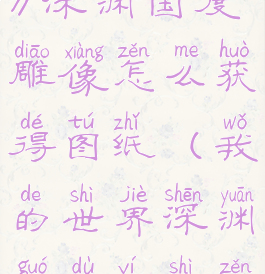 //深渊国度
diāo xiàng zěn me huò
雕像怎么获
dé tú zhǐ wǒ
得图纸(我
de shì jiè shēn yuān
的世界深渊
guó dù yí shì zěn